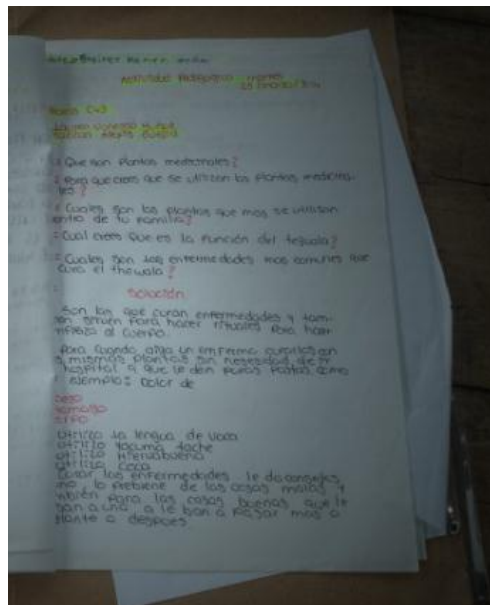 Actividad Pedagogica martes
1 Que son Plantas medicinales?
2 Para que crees que se utilizan las plantas medicina-
les?
Cuales son las plantas que mas se utilizan
entro de tu familia?
Cual crees que es la Función del tegual​a?
Cuales son las enfermedades mas comunes que
cura el thewala?
Solución
Son las que curan enfermedades y tam-
en sirven para hacer rituales para hacer
al cuerpo.
Para Cuando alga un enfermo curarlos con
s mismas plantas sin nesesidad de ir
hospital a que le den puras Pastas, como
ejemplo: Dolor de
utilizo la lengua de vaca
utilizo yacuma tache
utilizo Hiervabuena
utilizo coca
Curar las enfermedades, le da consejos
lo prebiene de las cosas malas y
mbién para las cosas buenas que le
ban a uno a le ban a Pasar mas a
elante o despues